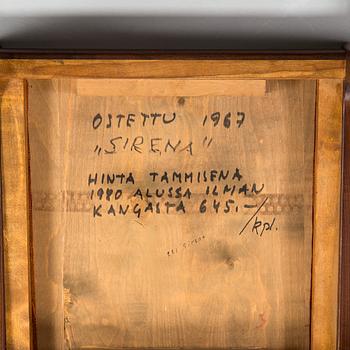 OSTETTU 1967
„SIRENA"
HINTA TAMMISENA
1980 ALUSSA ILMAN
KANGASTA 645.-/kpl.